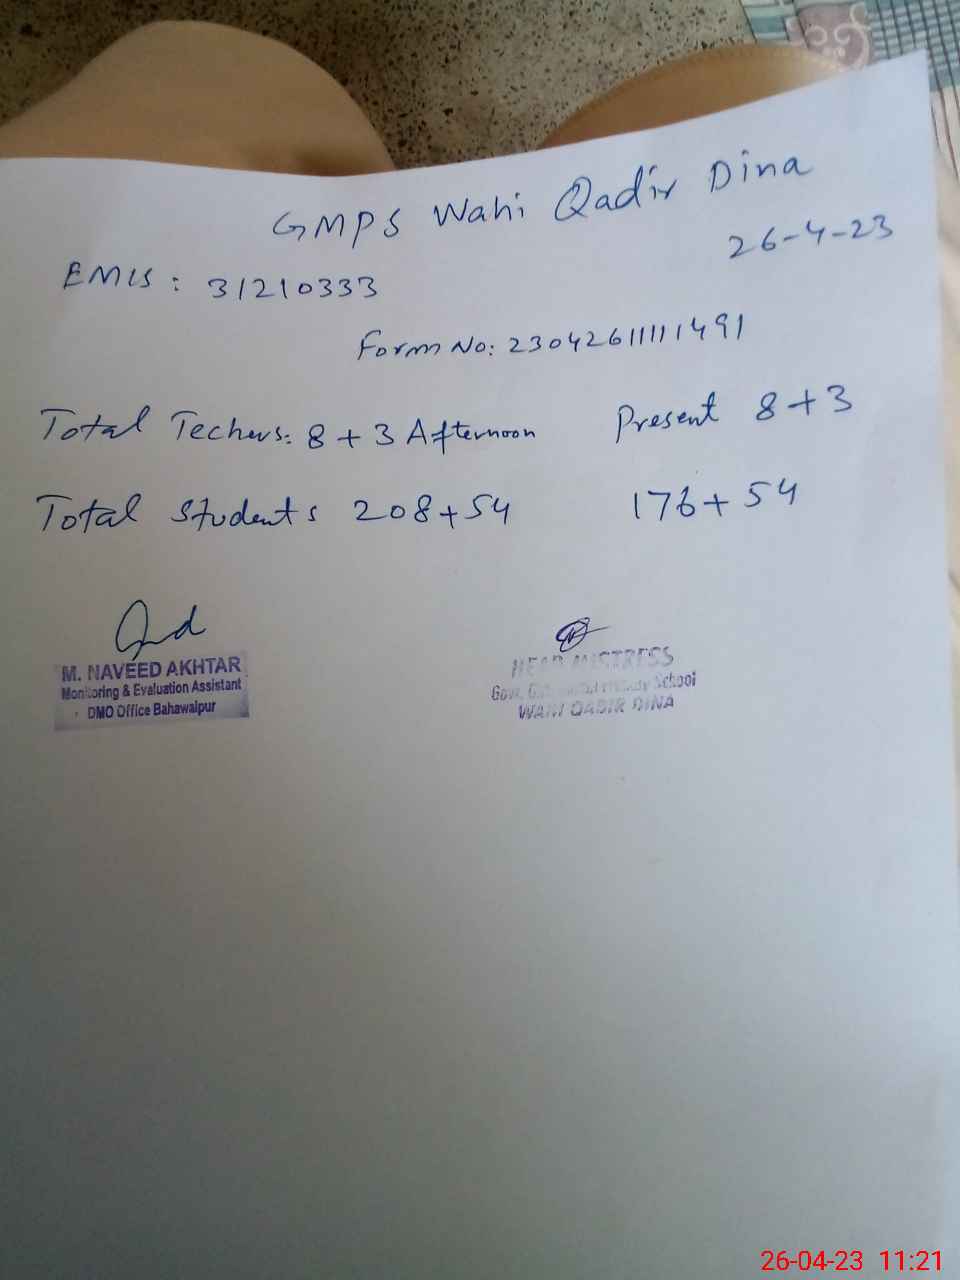 GMPS Wahi Qadir Dina
26-4-23
EMIS: 31210333
Form No: 23042611111491
Total Techers: 8+3 Afternoon Present 8+3
Total Students 208+54 176+54
M. NAVEED AKHTAR
Monitoring & Evaluation Assistant
DMO Office Bahawalpur
HEAD MISTRESS
Govt. School
WAHI QADIR DINA
26-04-23 11:21